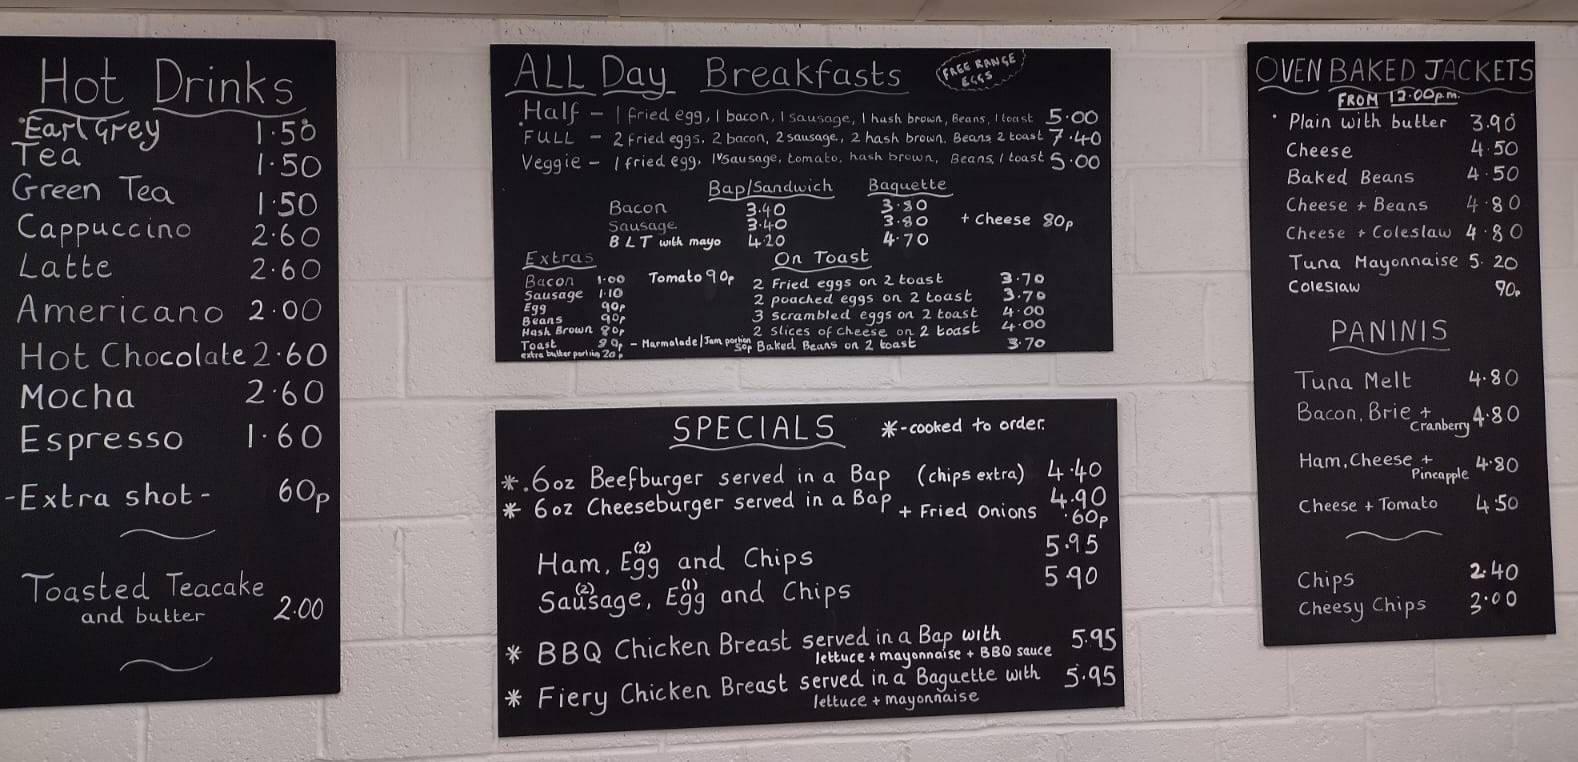 Hot Drinks
Earl Grey 1.50
Tea 1.50
Green Tea 1.50
Cappuccino 2.60
Latte 2.60
Americano 2.00
Hot Chocolate 2.60
Mocha 2.60
Espresso 1.60
- Extra shot - 60p
Toasted Teacake
and butter 2.00
ALL Day Breakfasts
FREE RANGE
EGGS
Half - 1 fried egg, 1 bacon, 1 sausage, 1 hash brown, Beans, 1 toast 5.00
FULL - 2 fried eggs, 2 bacon, 2 sausage, 2 hash brown. Beans 2 toast 7.40
Veggie - 1 fried egg, 1 vsausage, tomato, hash brown, Beans, 1 toast 5.00
Bap/Sandwich Baguette
Bacon 3.40 3.80
Sausage 3.40 3.80 + Cheese 80p
BLT with mayo 4.20 4.70
Extras On Toast
Bacon 1.00 Tomato 90p 2 Fried eggs on 2 toast 3.70
Sausage 1.10 2 poached eggs on 2 toast 3.70
Egg 90p 3 scrambled eggs on 2 toast 4.00
Beans 90p 2 slices of cheese on 2 toast 4.00
Hash Brown 80p Baked Beans on 2 toast 3.70
Toast 80p - Marmalade/Jam portion 50p
extra butter portion 20p
SPECIALS *-cooked to order.
*. 6oz Beefburger served in a Bap (chips extra) 4.40
* 6oz Cheeseburger served in a Bap 4.90
+ Fried Onions .60p
Ham, Egg (2) and Chips 5.95
Sausage (2), Egg (1) and Chips 5.90
* BBQ Chicken Breast served in a Bap with 5.95
lettuce + mayonnaise + BBQ sauce
* Fiery Chicken Breast served in a Baguette with 5.95
lettuce + mayonnaise
OVEN BAKED JACKETS
FROM 12.00pm.
Plain with butter 3.90
Cheese 4.50
Baked Beans 4.50
Cheese + Beans 4.80
Cheese + Coleslaw 4.80
Tuna Mayonnaise 5.20
Coleslaw 90p
PANINIS
Tuna Melt 4.80
Bacon, Brie + Cranberry 4.80
Ham, Cheese + Pineapple 4.80
Cheese + Tomato 4.50
Chips 2.40
Cheesy Chips 3.00